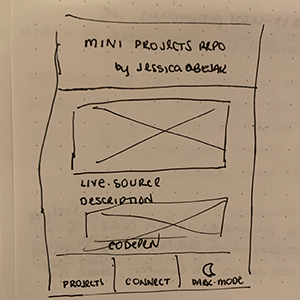 MINI PROJECTS REPO
by JESSICA @BEJAR
LIVE · SOURCE
DESCRIPTION
CODEPEN
PROJECTS CONNECT DARK · MODE